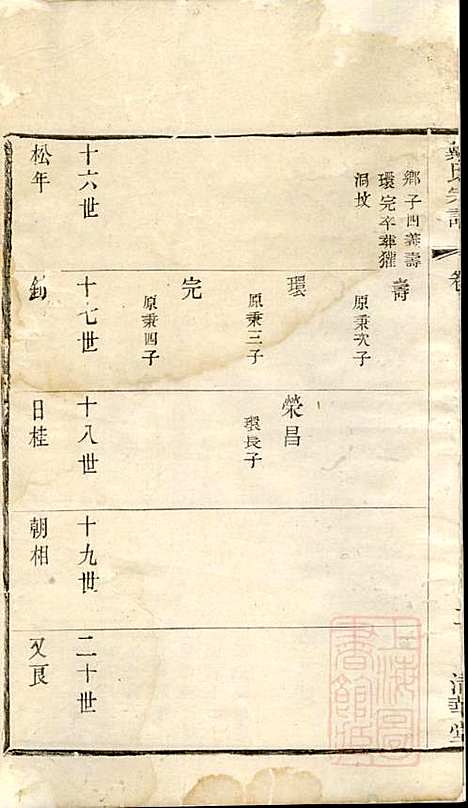 氏宗譜
卷
清華堂
鄉子四義壽
環完卒葬獾
洞墳
壽
原秉次子
環
原秉三子
完
原秉四子
榮昌
環長子
十六世
十七世
十八世
十九世
二十世
松年
釗
日桂
朝相
又良